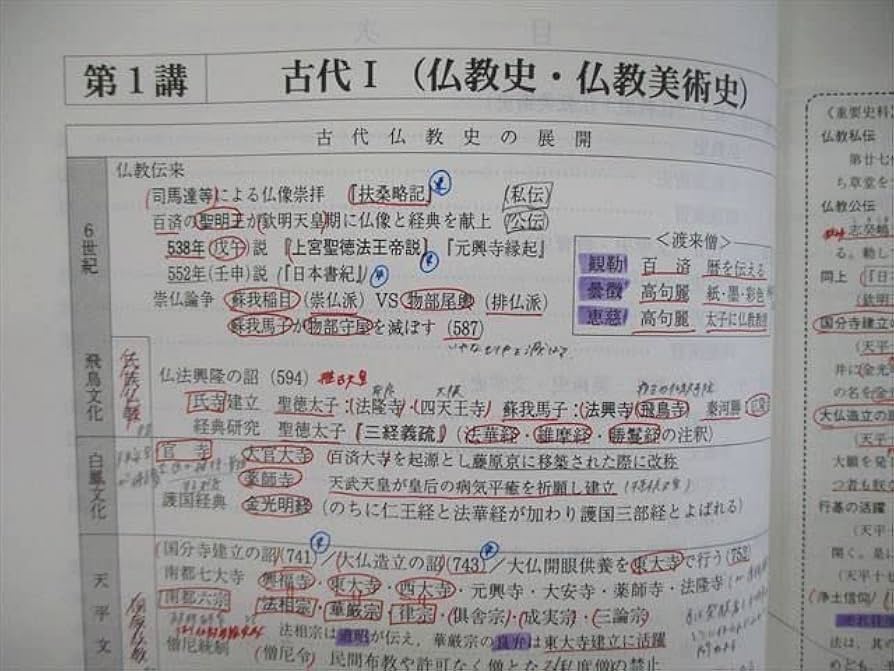 第1講 古代Ⅰ (仏教史・仏教美術史)
古代仏教史の展開
6世紀
仏教伝来
司馬達等による仏像崇拝 『扶桑略記』 (私伝)
百済の聖明王が欽明天皇期に仏像と経典を献上 (公伝)
538年(戊午)説 『上宮聖徳法王帝説』『元興寺縁起』
552年(壬申)説(『日本書紀』)
崇仏論争 蘇我稲目(崇仏派) VS 物部尾輿(排仏派)
蘇我馬子が物部守屋を滅ぼす(587)
<渡来僧>
観勒 百済 暦を伝える
曇徴 高句麗 紙・墨・彩色
恵慈 高句麗 太子に仏教教授
飛鳥文化
氏族仏教
仏法興隆の詔(594) 推古天皇
氏寺建立 聖徳太子:(法隆寺)・(四天王寺) 蘇我馬子:(法興寺(飛鳥寺) 秦河勝:
経典研究 聖徳太子『三経義疏』(法華経・維摩経・勝鬘経の注釈)
白鳳文化
官寺 大官大寺(百済大寺を起源とし藤原京に移築された際に改称
薬師寺 天武天皇が皇后の病気平癒を祈願し建立
護国経典 金光明経(のちに仁王経と法華経が加わり護国三部経とよばれる)
天平文
国分寺建立の詔(741)/大仏造立の詔(743)/大仏開眼供養を東大寺で行う(752)
南都七大寺 興福寺・東大寺・西大寺・元興寺・大安寺・薬師寺・法隆寺
南都六宗 法相宗・華厳宗・律宗・(倶舎宗)・(成実宗)・(三論宗)
法相宗は道昭が伝え、華厳宗の良弁は東大寺建立に活躍
僧尼統制 (僧尼令) 民間布教や許可なく僧となる(私度僧)の禁止
《重要史料
仏教私伝
第廿七
ち草堂を
仏教公伝
志癸嶋
る。勅して
同上 (『日
(欽明
国分寺建立の
(天平
井に(金光
の名を(金
大仏造立の
(天平
大願を発
行基の活躍
(天平十
開く。是に
(天平十七
(浄土信仰